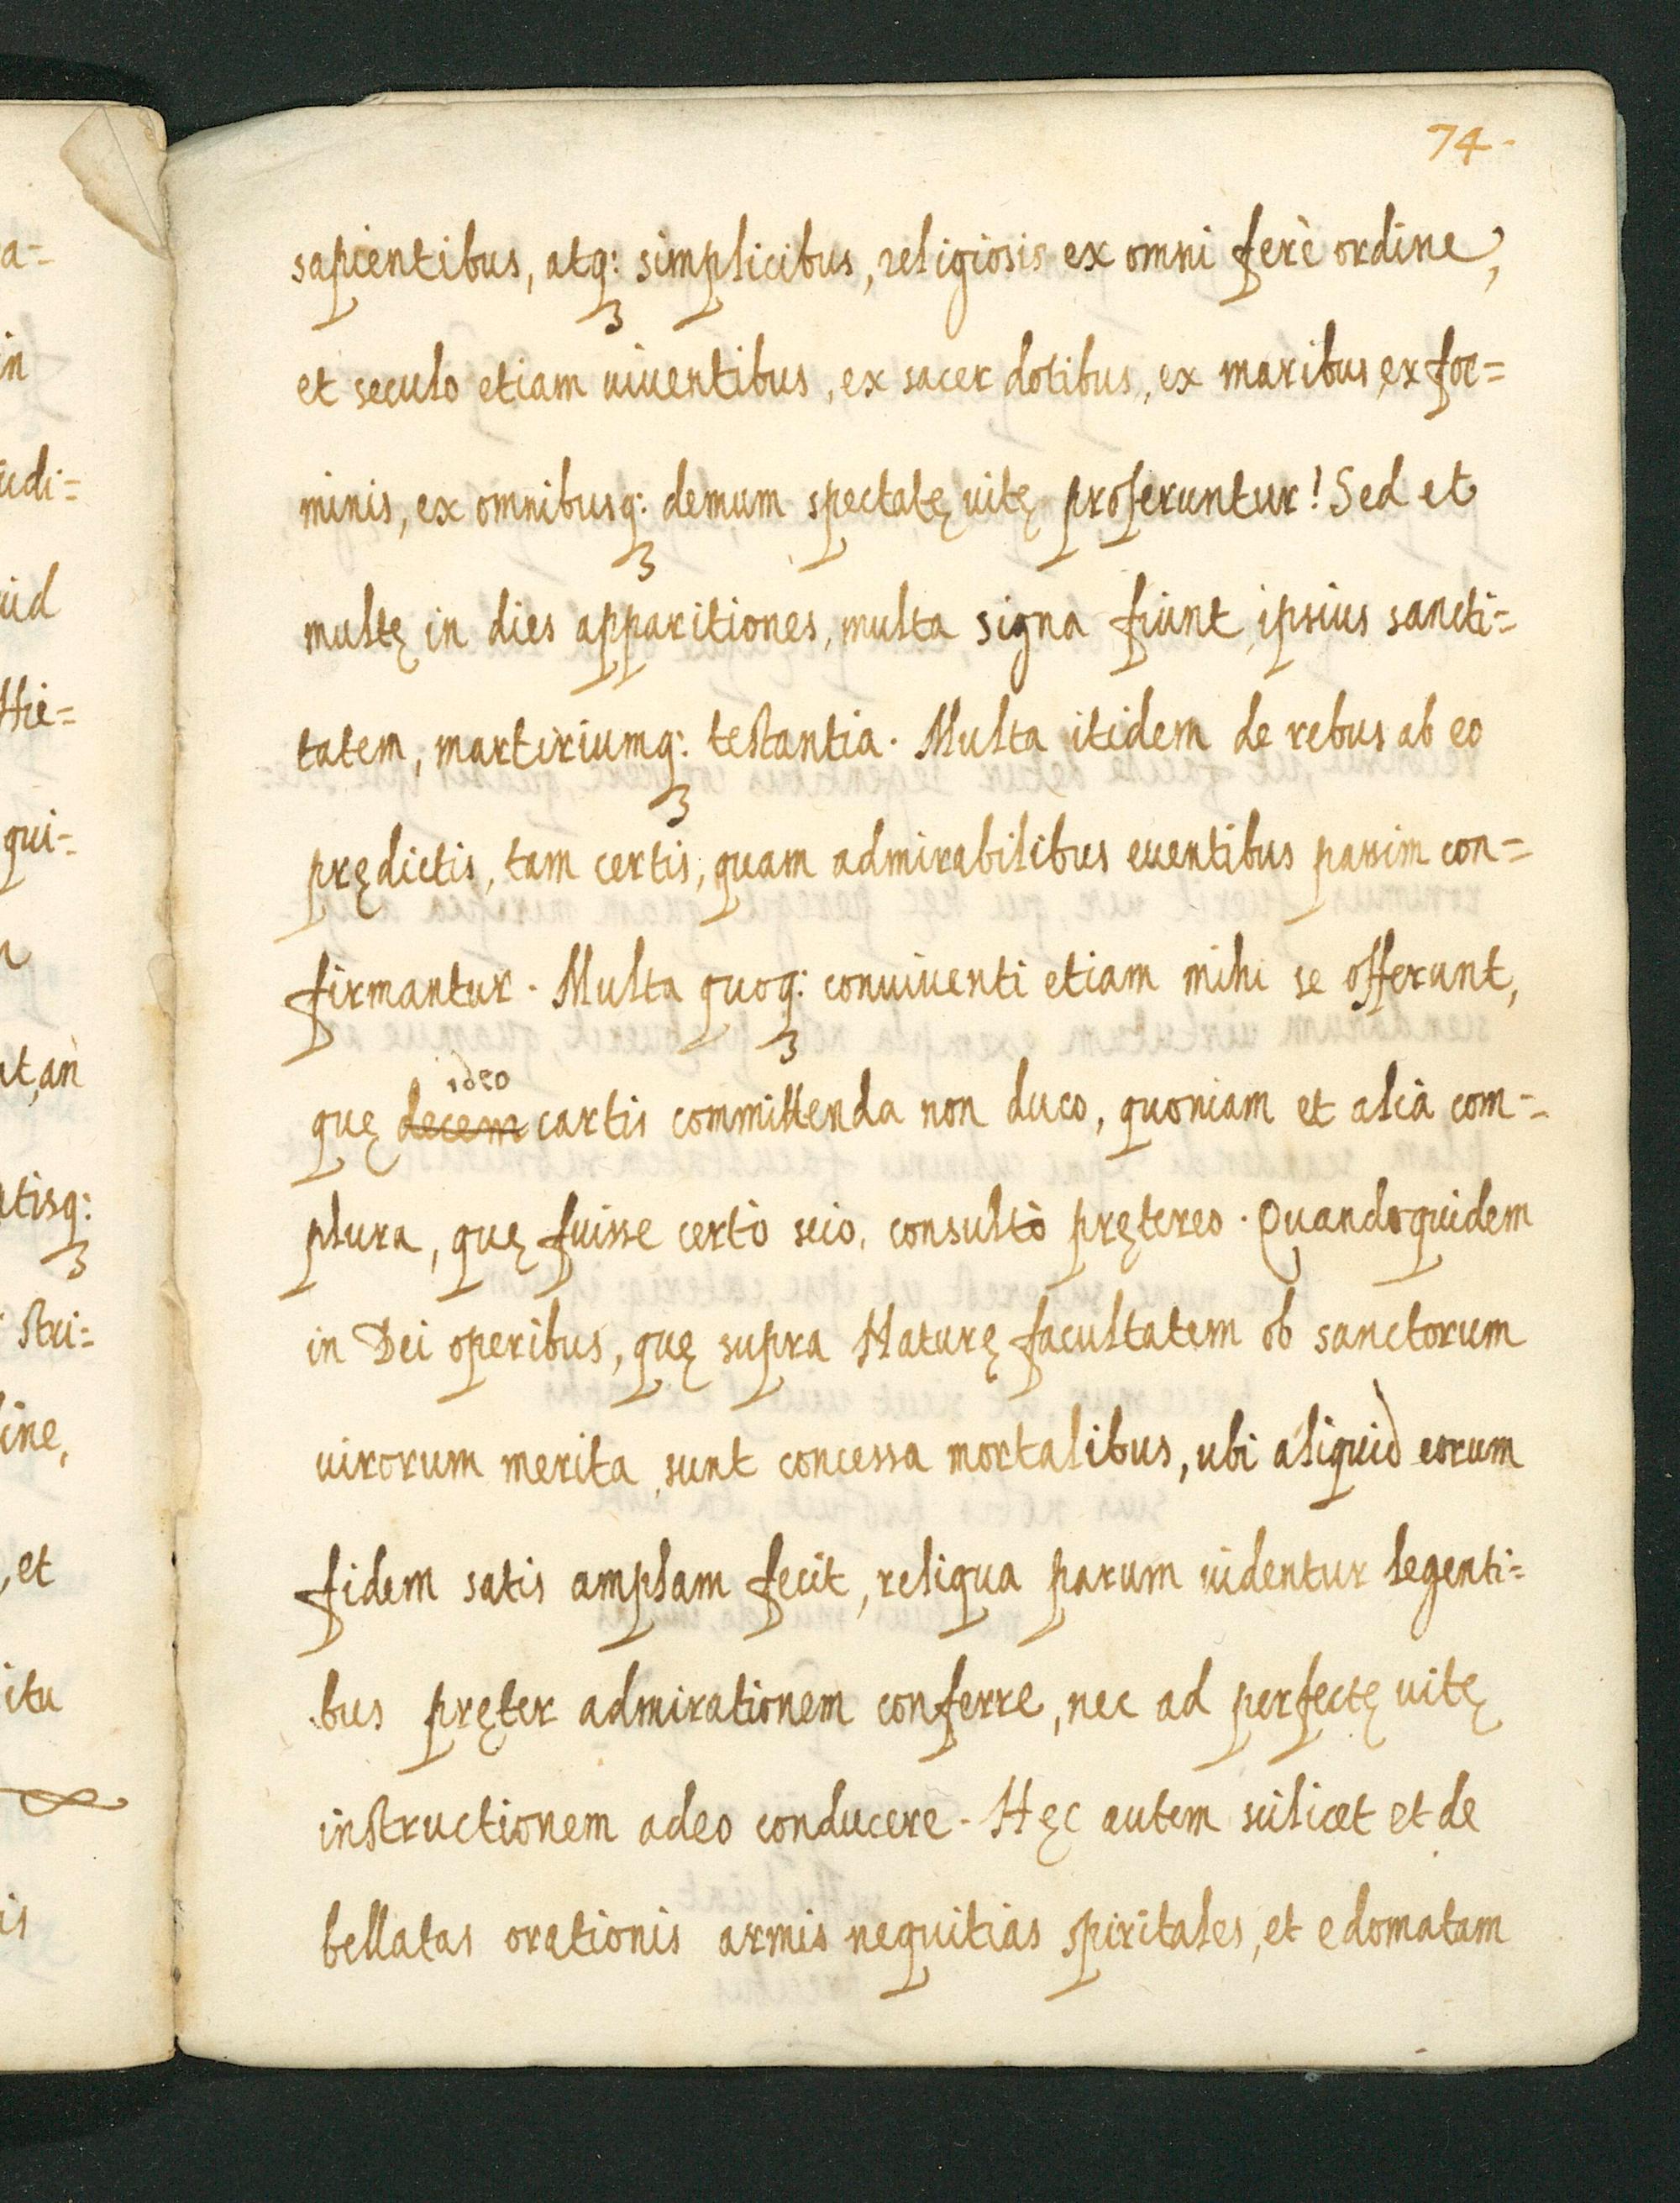 74.
sapientibus, atq: simplicibus, religiosis ex omni ferè ordine,
et seculo etiam uiuentibus, ex sacerdotibus, ex maribus, ex foe=
minis, ex omnibusq: demum spectatę uitę proferuntur! Sed et
multę in dies apparitiones, multa signa fiunt, ipsius sancti=
tatem, martiriumq: testantia. Multa itidem de rebus ab eo
prędictis, tam certis, quam admirabilibus euentibus passim con=
firmantur. Multa quoq: conuiuenti etiam mihi se offerunt,
ideo
quę decem cartis committenda non duco, quoniam et alia com=
plura, quę fuisse certò scio, consultò prętereo. Quandoquidem
in Dei operibus, quę supra Naturę facultatem ob sanctorum
uirorum merita, sunt concessa mortalibus, ubi aliquid eorum
fidem satis amplam fecit, reliqua parum uidentur legenti=
bus pręter admirationem conferre, nec ad perfectę uitę
instructionem adeo conducere. Hęc autem scilicet et de
bellatas orationis armis nequitias spiritales, et edomatam
a=
in
udi=
uid
Hie=
qui=
at, an
atisq:
stri=
ine,
, et
itu
is